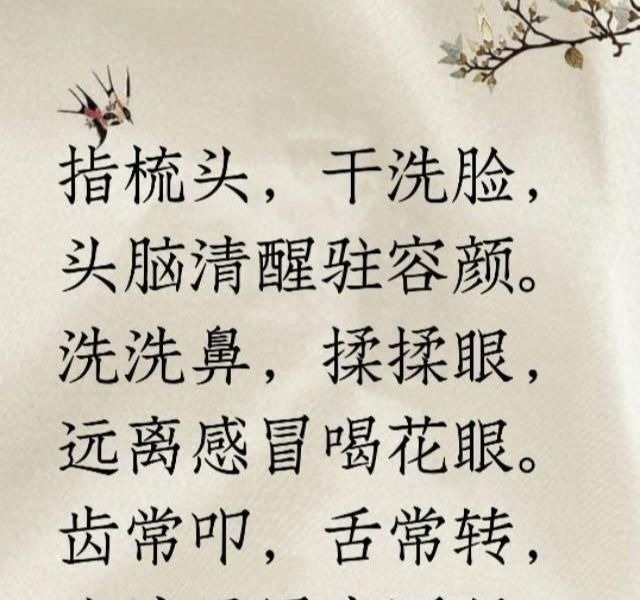 指梳头，干洗脸，
头脑清醒驻容颜。
洗洗鼻，揉揉眼，
远离感冒喝花眼。
齿常叩，舌常转，